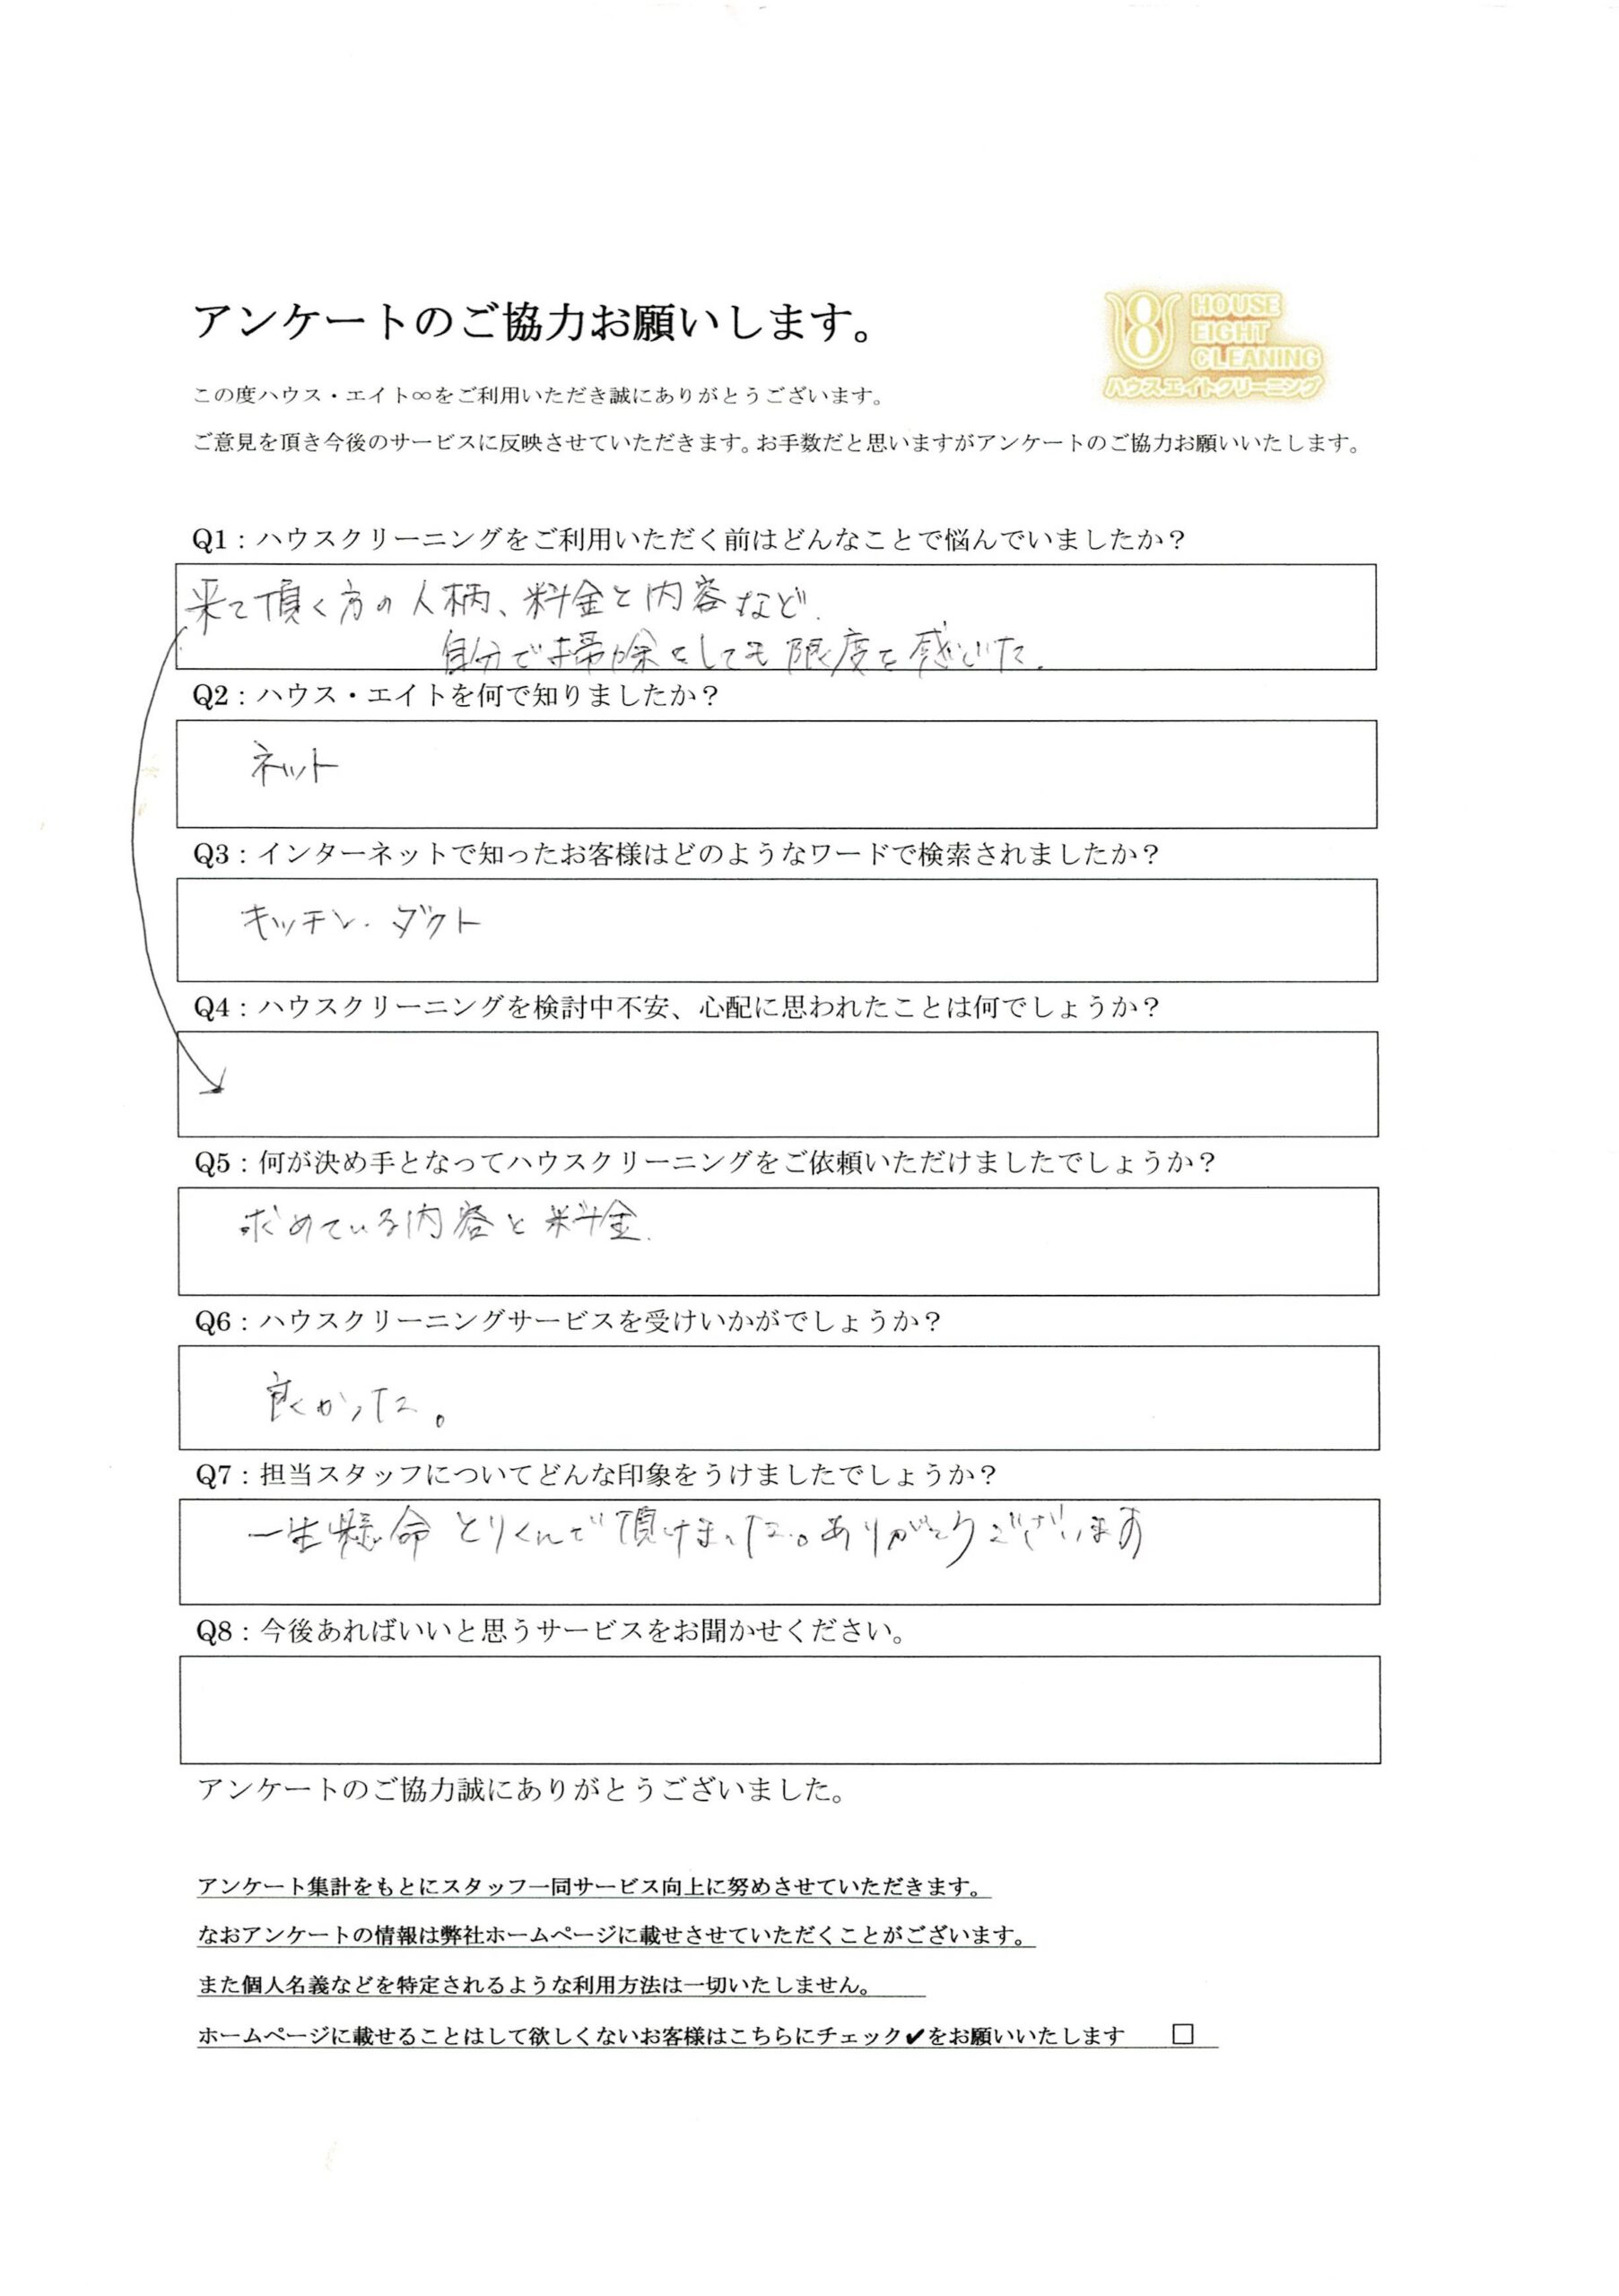 アンケートのご協力お願いします。
HOUSE
EIGHT
CLEANING
ハウスエイトクリーニング
この度ハウス・エイト∞をご利用いただき誠にありがとうございます。
ご意見を頂き今後のサービスに反映させていただきます。お手数だと思いますがアンケートのご協力お願いいたします。
Q1：ハウスクリーニングをご利用いただく前はどんなことで悩んでいましたか？
来て頂く方の人柄、料金と内容など.
自分で掃除をしても限度を感じいた.
Q2：ハウス・エイトを何で知りましたか？
ネット
Q3：インターネットで知ったお客様はどのようなワードで検索されましたか？
キッチン. ダクト
Q4：ハウスクリーニングを検討中不安、心配に思われたことは何でしょうか？
Q5：何が決め手となってハウスクリーニングをご依頼いただけましたでしょうか？
求めている内容と料金.
Q6：ハウスクリーニングサービスを受けいかがでしょうか？
良かった。
Q7：担当スタッフについてどんな印象をうけましたでしょうか？
一生懸命とりくんで頂けました。ありがとうございます
Q8：今後あればいいと思うサービスをお聞かせください。
アンケートのご協力誠にありがとうございました。
アンケート集計をもとにスタッフ一同サービス向上に努めさせていただきます。
なおアンケートの情報は弊社ホームページに載せさせていただくことがございます。
また個人名義などを特定されるような利用方法は一切いたしません。
ホームページに載せることはして欲しくないお客様はこちらにチェック✔をお願いいたします □